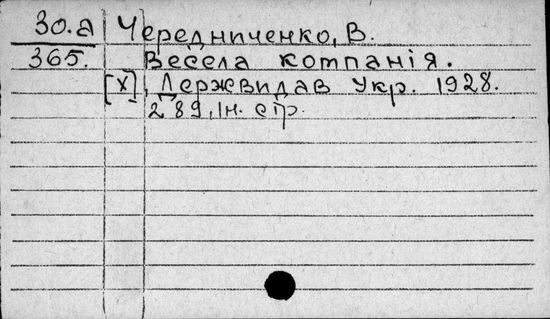 30.а Чередниченко, В.
365. Весела компанія.
[Х], Держвидав Укр. 1928.
289, ін. стр.